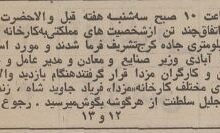 ت ۱۰ صبح سه‌شنبه هفته قبل والاحضرت
اتفاق چند تن از شخصیت های مملکتی به کارخانه
ومتری جاده کرج تشریف فرما شدند و مورد است
آبادی وزیر صنایع و معادن و مدیر عامل و
و کارگران مزدا قرار گرفتند هنگام بازدید والا
ی مختلف کارخانه «مزدا» فریاد جاوید شاه ، زند
لیل سلطنت از هرگوشه بگوش میرسید . رجوع
۱۲ و ۱۳